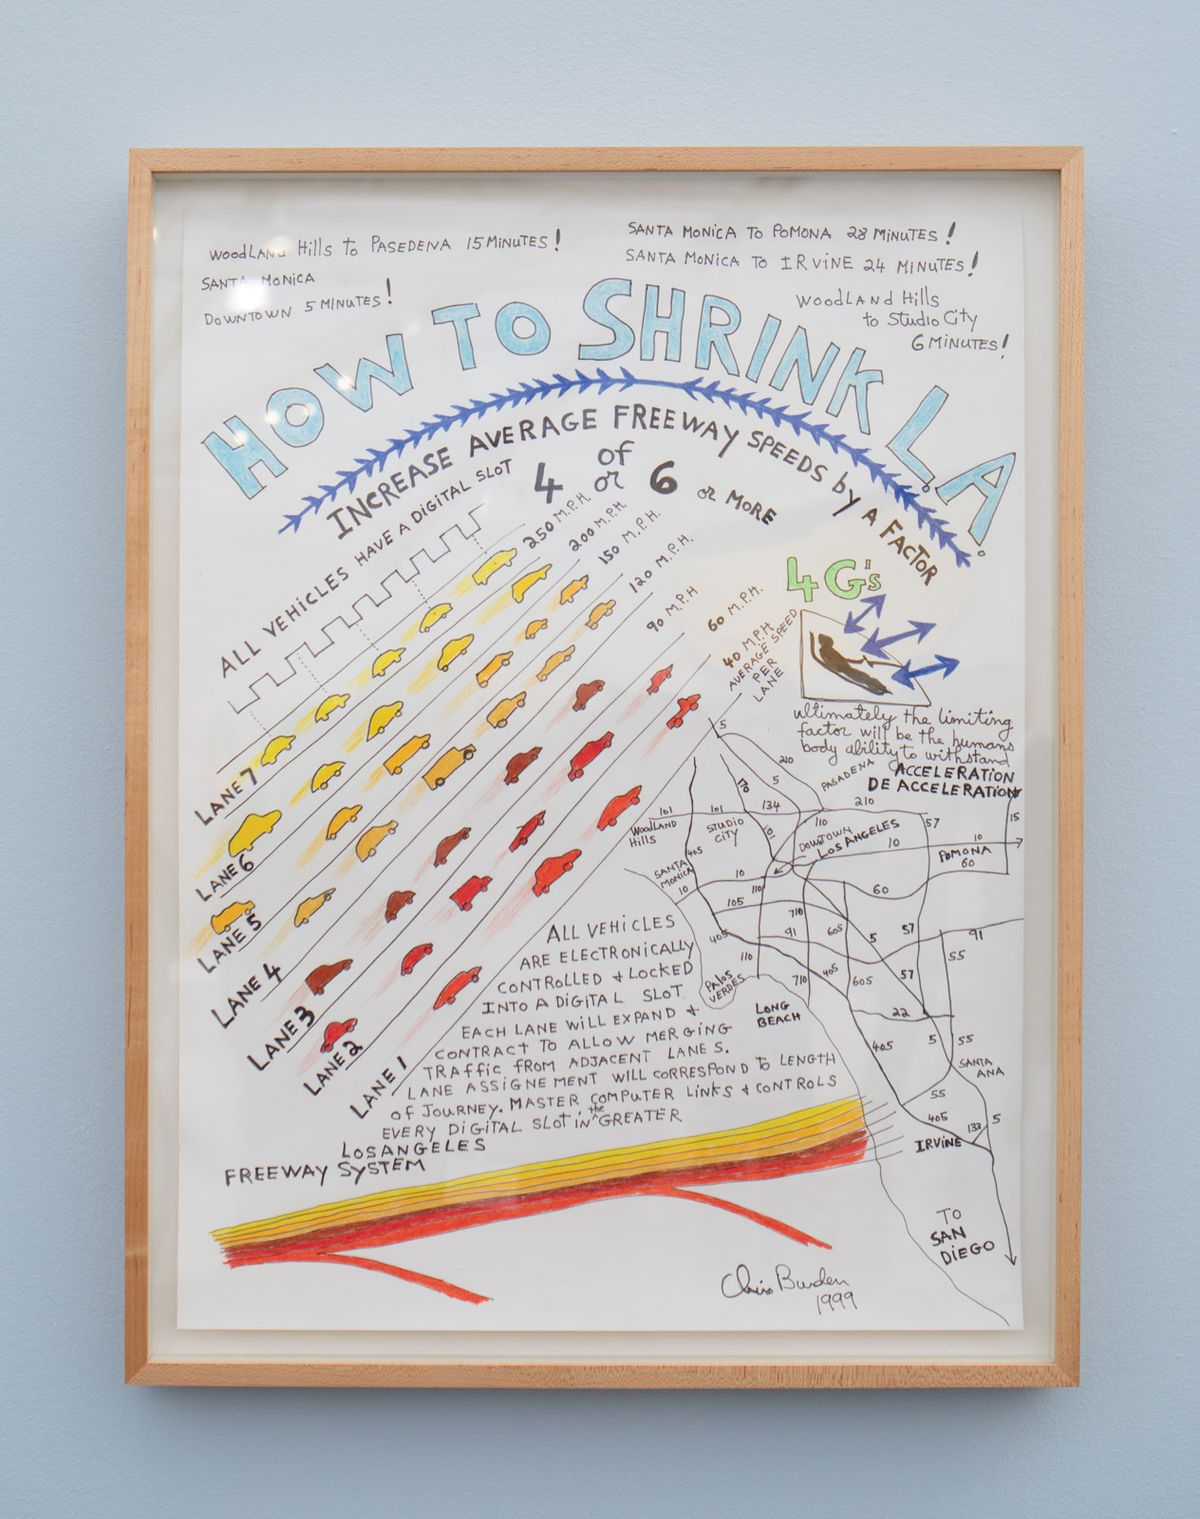 WOODLAND Hills to PASEDENA 15 MINUTES!
SANTA MONICA
DOWNTOWN 5 MINUTES!
SANTA MONICA TO POMONA 28 MINUTES!
SANTA MONICA TO IRVINE 24 MINUTES!
WOODLAND Hills
to Studio City
6 MINUTES!
HOW TO SHRINK L.A.
INCREASE AVERAGE FREEWAY SPEEDS by A FACTOR
of
4 or 6 or MORE
ALL VEHICLES HAVE A DIGITAL SLOT
250 M.P.H.
200 M.P.H.
150 M.P.H.
120 M.P.H.
90 M.P.H
60 M.P.H.
40 M.P.H.
AVERAGE SPEED
PER
LANE
LANE 7
LANE 6
LANE 5
LANE 4
LANE 3
LANE 2
LANE 1
4 G's
ultimately the limiting
factor will be the humans
body ability to withstand
ACCELERATION
DE ACCELERATION
5
210
5
170
PASADENA
210
15
101
101
134
WOODLAND
Hills
STUDIO
CITY
101
110
DOWNTOWN
LOS ANGELES
57
10
10
POMONA
60
405
SANTA
MONICA
10
10
110
60
105
710
405
91
605
5
57
91
110
PALOS
VERDES
710
405
605
57
55
LONG
BEACH
22
405
5
55
SANTA
ANA
55
405
133
5
IRVINE
TO
SAN
DIEGO
ALL VEHICLES
ARE ELECTRONICALLY
CONTROLLED + LOCKED
INTO A DIGITAL SLOT
EACH LANE WILL EXPAND +
CONTRACT TO ALLOW MERGING
TRAFFIC FROM ADJACENT LANES.
LANE ASSIGNEMENT WILL CORRESPOND to LENGTH
OF JOURNEY. MASTER COMPUTER LINKS + CONTROLS
EVERY DIGITAL SLOT in the GREATER
LOS ANGELES
FREEWAY SYSTEM
Chris Burden
1999